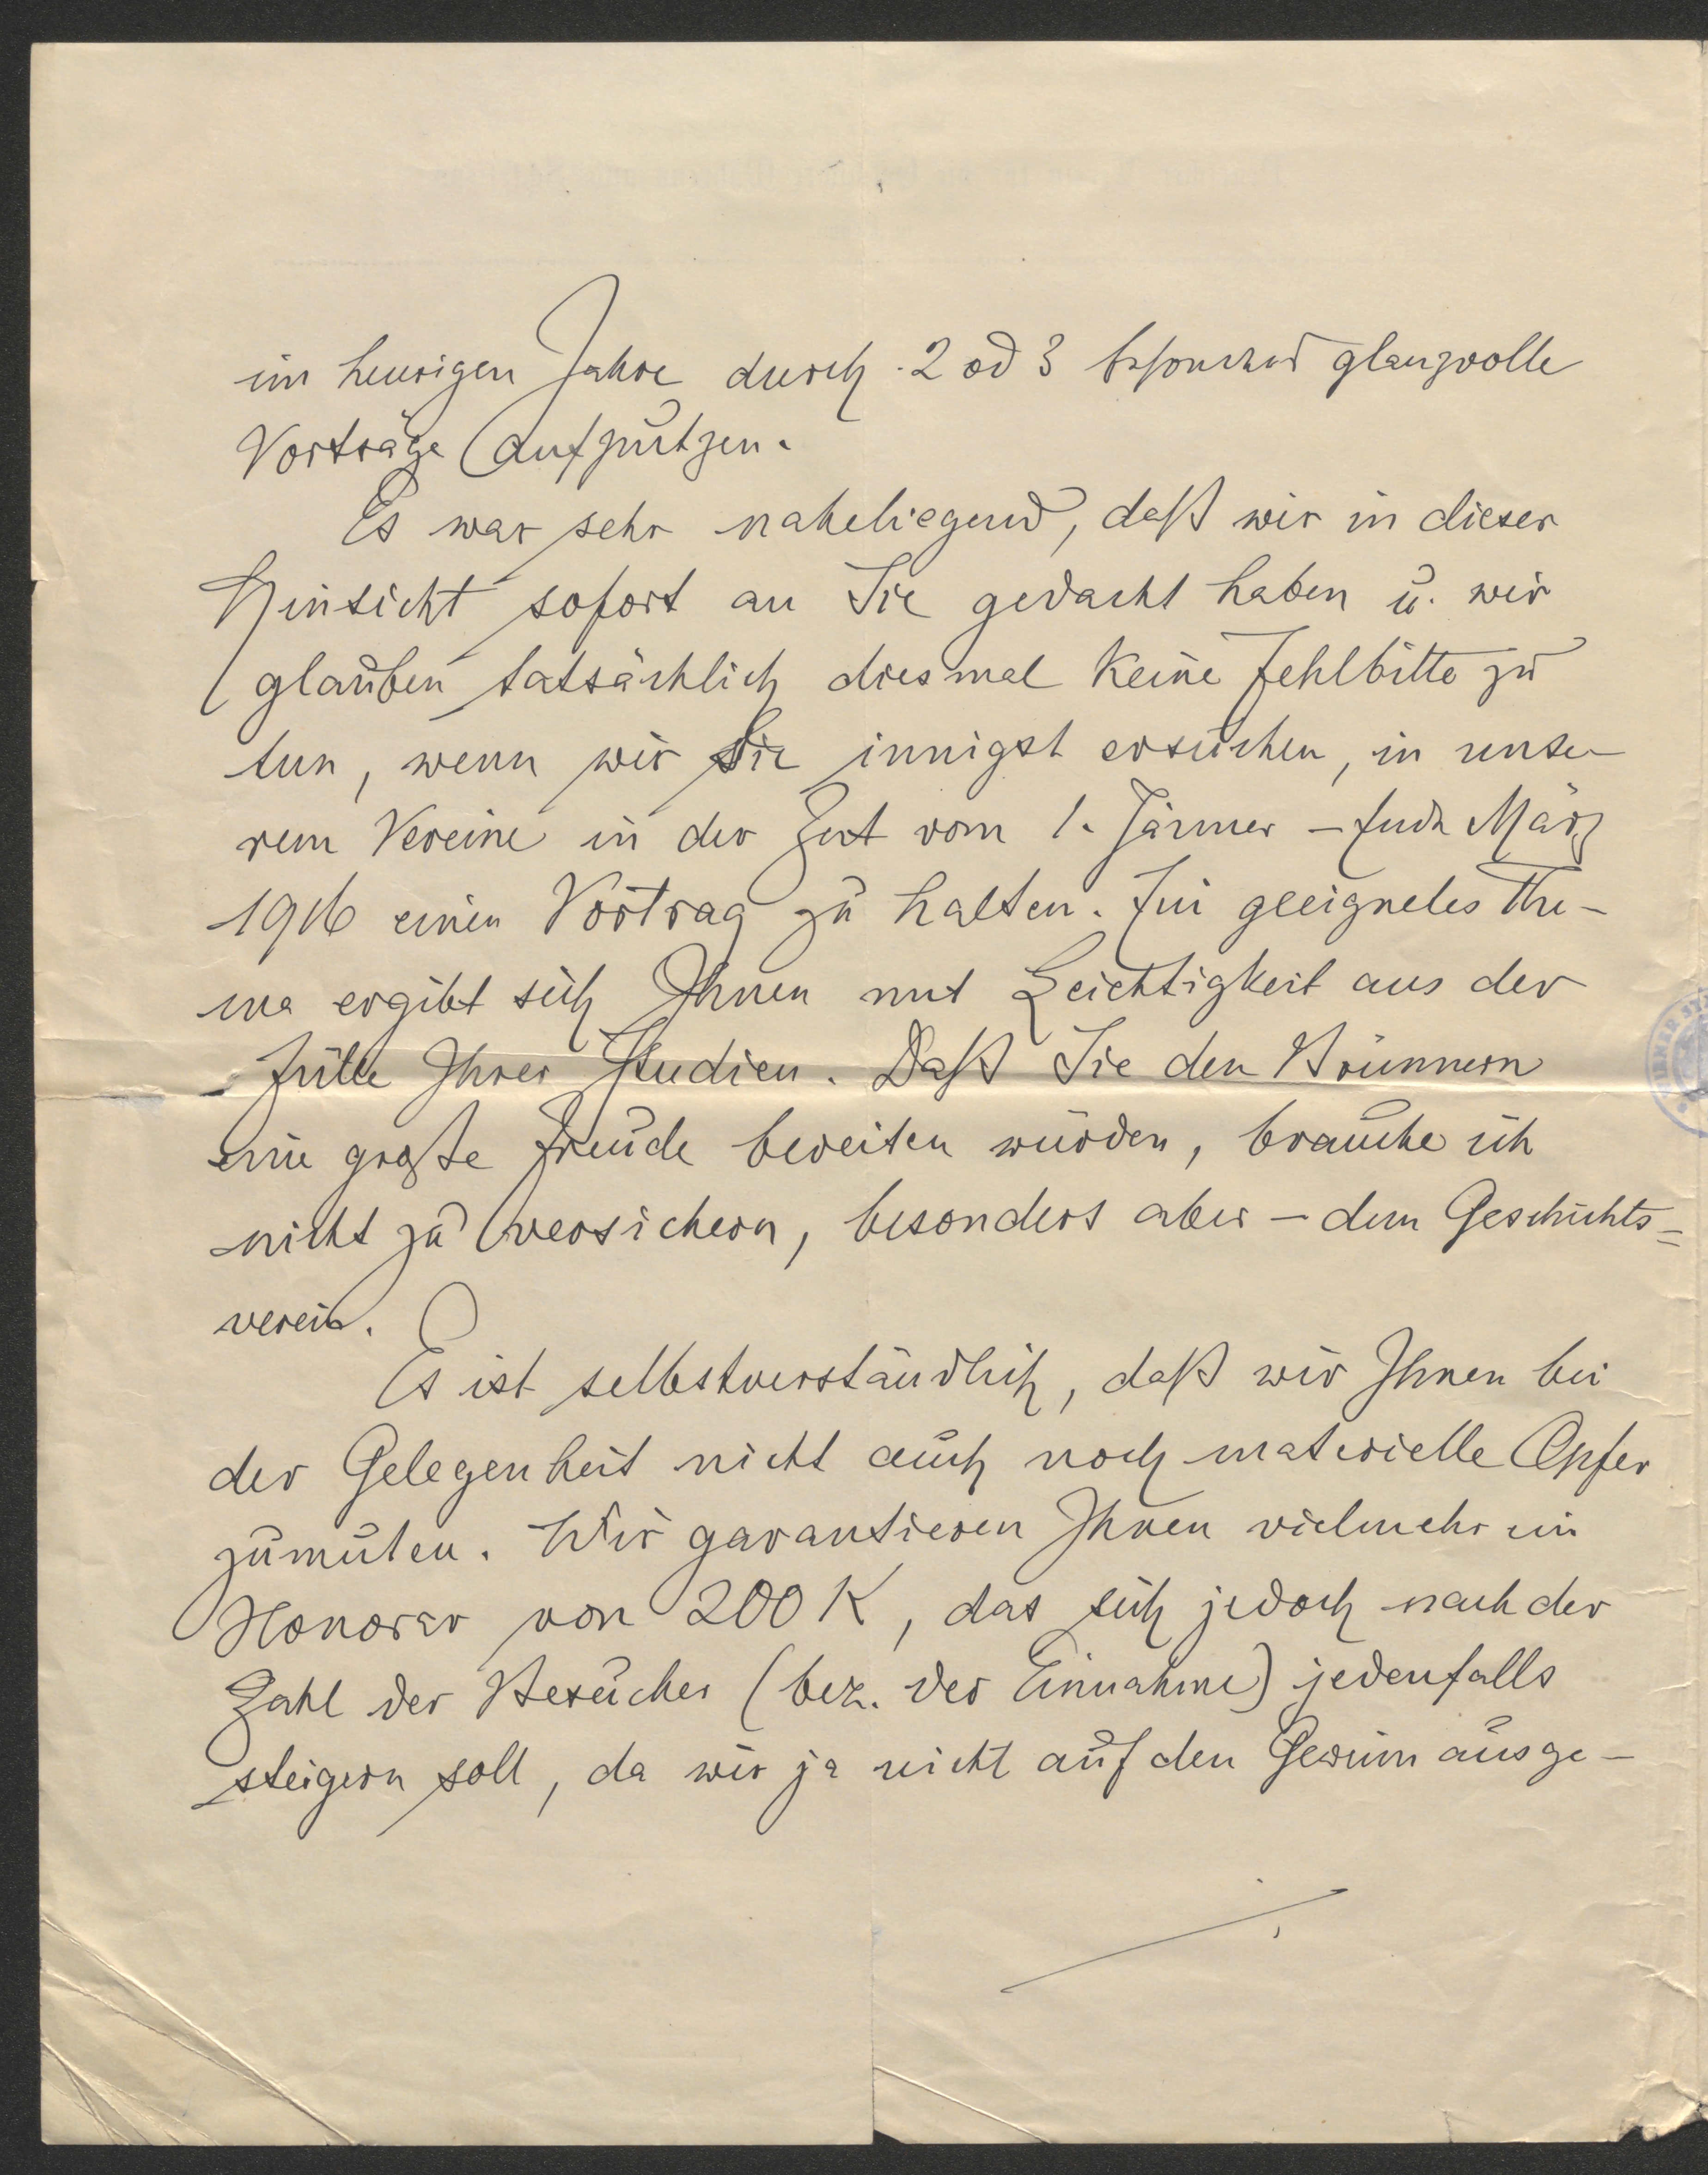 im heurigen Jahre durch 2 od 3 besonders glanzvolle
Vorträge aufputzen.
Es war sehr naheliegend, daß wir in dieser
Hinsicht sofort an Sie gedacht haben u. wir
glauben tatsächlich diesmal keine Fehlbitte zu
tun, wenn wir Sie innigst ersuchen, in unse-
rem Vereine in der Zeit vom 1. Jänner – Ende März
1916 einen Vortrag zu halten. Ein geeignetes The-
ma ergibt sich Ihnen mit Leichtigkeit aus der
Fülle Ihrer Studien. Daß Sie den Brünnern
eine große Freude bereiten würden, brauche ich
nicht zu versichern, besonders aber – dem Geschichts=
verein.
Es ist selbstverständlich, daß wir Ihnen bei
der Gelegenheit nicht auch noch materielle Opfer
zumuten. Wir garantieren Ihnen vielmehr ein
Honorar von 200 K, das sich jedoch nach der
Zahl der Besucher (bez. der Einnahme) jedenfalls
steigern soll, da wir ja nicht auf den Gewinn ausge-